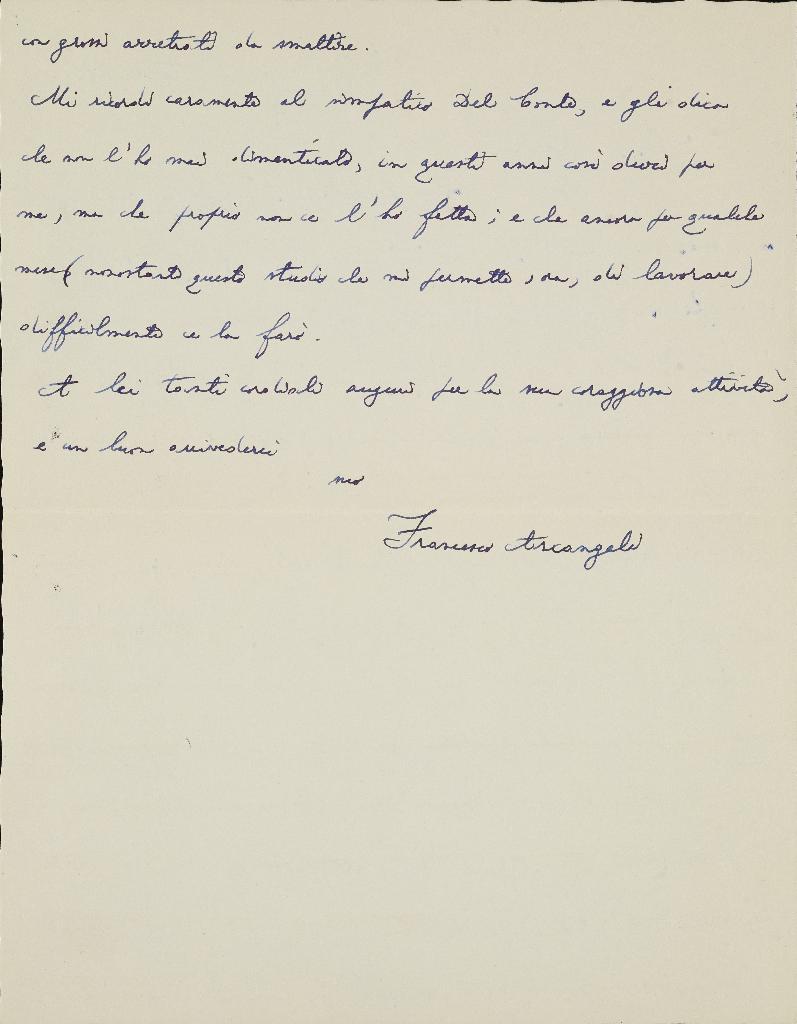 con grossi arretrati da smaltire.
Mi ricordi caramente al simpatico Del Conte, e gli dica
che non l'ho mai dimenticato, in questi anni così duri per
me, ma che proprio non ce l'ho fatta; e che ancora per qualche
mese (nonostante questo studio che mi permette, ora, di lavorare)
difficilmente ce la farò.
A lei tanti cordiali auguri per la sua coraggiosa attività,
e un buon arrivederci
suo
Francesco Arcangeli